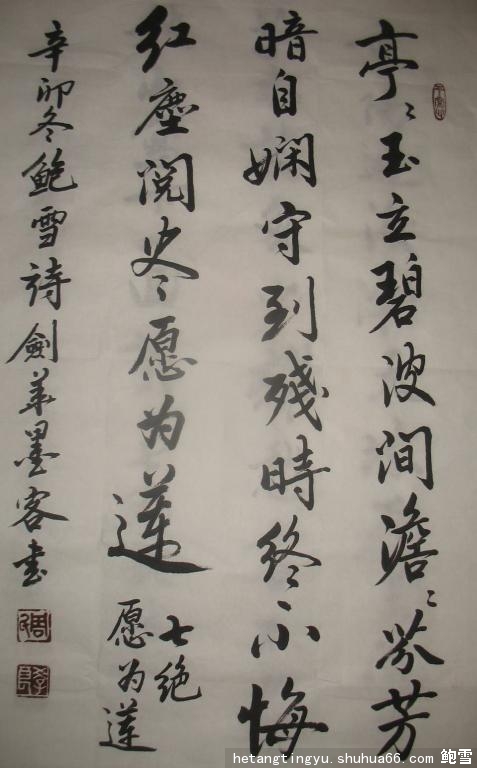 亭々玉立碧波涧澹々芬芳
暗自娴守到殘時终不悔
红塵阅尽愿为莲
七绝
愿为莲
辛卯冬鲍雪詩劍華墨客书
hetangtingyu.shuhua66.com 鲍雪